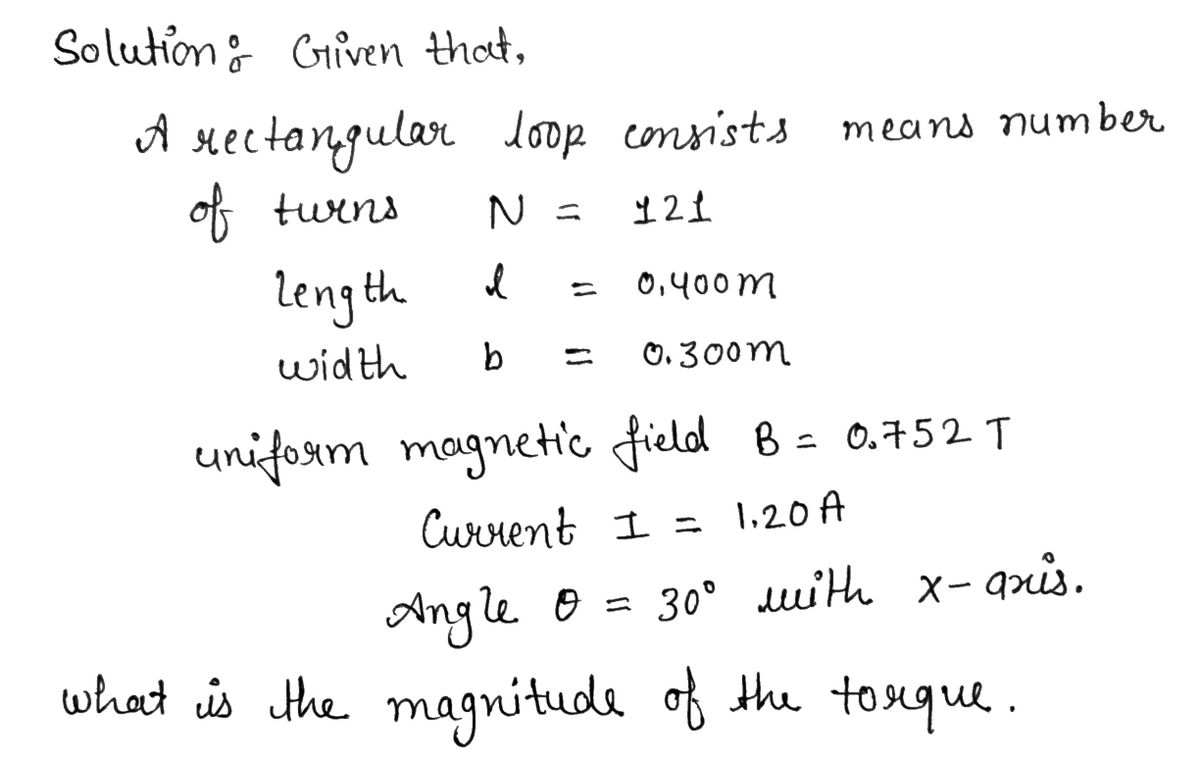 Solution: Given that,
A rectangular loop consists means number
of turns N = 121
length l = 0.400m
width b = 0.300m
uniform magnetic field B = 0.752 T
Current I = 1.20 A
Angle θ = 30° with x-axis.
what is the magnitude of the torque.